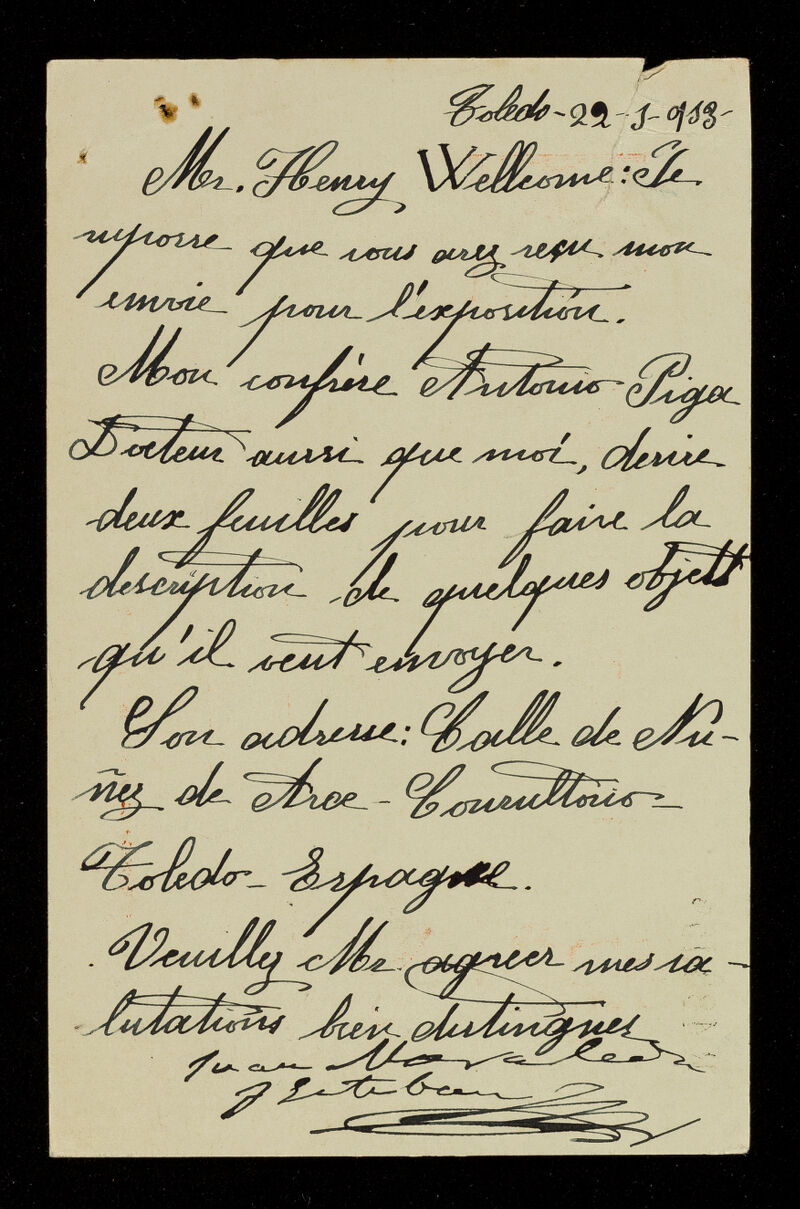 Toledo-22-1-913-
Mr. Henry Wellcome: Je
supposse que vous avez reçu mon
envoie pour l'exposition.
Mon confrère Antonio Piga
Docteur aussi que moi, desire
deux feuilles pour faire la
description de quelques objets
qu'il veut envoyer.
Son adresse: Calle de Nu-
ñez de Arce - Consultorio-
Toledo- Espagne.
Veuillez Mr agreer mes sa-
lutations bien distingues
Juan Moraleda
y Esteban